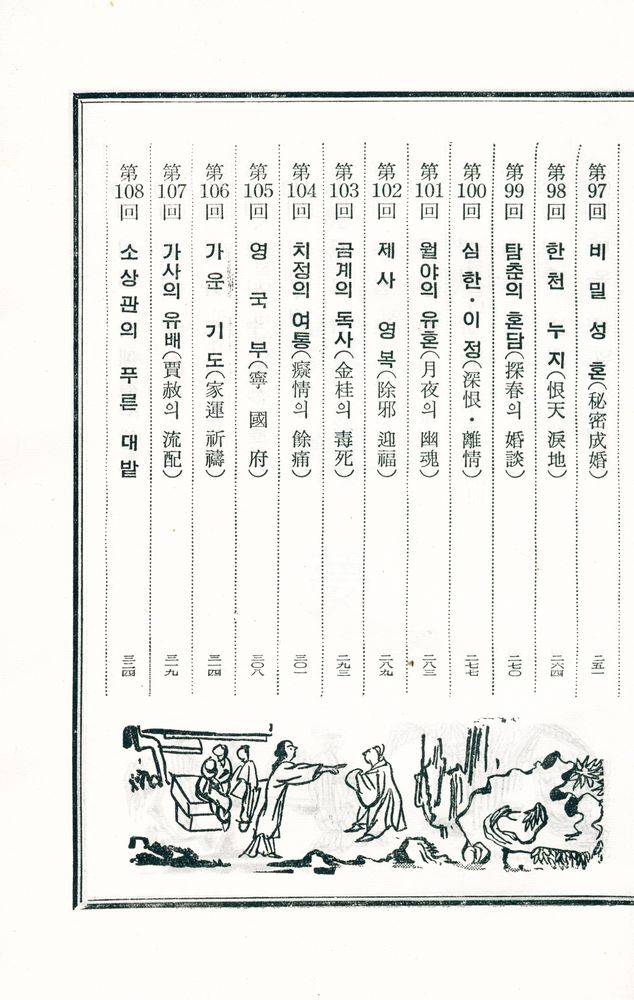 第97回 비밀성혼(秘密成婚) 二五一
第98回 한천 누지(恨天 淚地) 二六四
第99回 탐춘의 혼담(探春의 婚談) 二七〇
第100回 심한·이정(深恨·離情) 二七七
第101回 월야의 유혼(月夜의 幽魂) 二八三
第102回 제사 영복(除邪 迎福) 二八九
第103回 금계의 독사(金桂의 毒死) 二九三
第104回 치정의 여통(癡情의 餘痛) 三〇一
第105回 영국부(寧國府) 三〇八
第106回 가운 기도(家運 祈禱) 三一四
第107回 가사의 유배(賈赦의 流配) 三一九
第108回 소상관의 푸른 대발 三二四